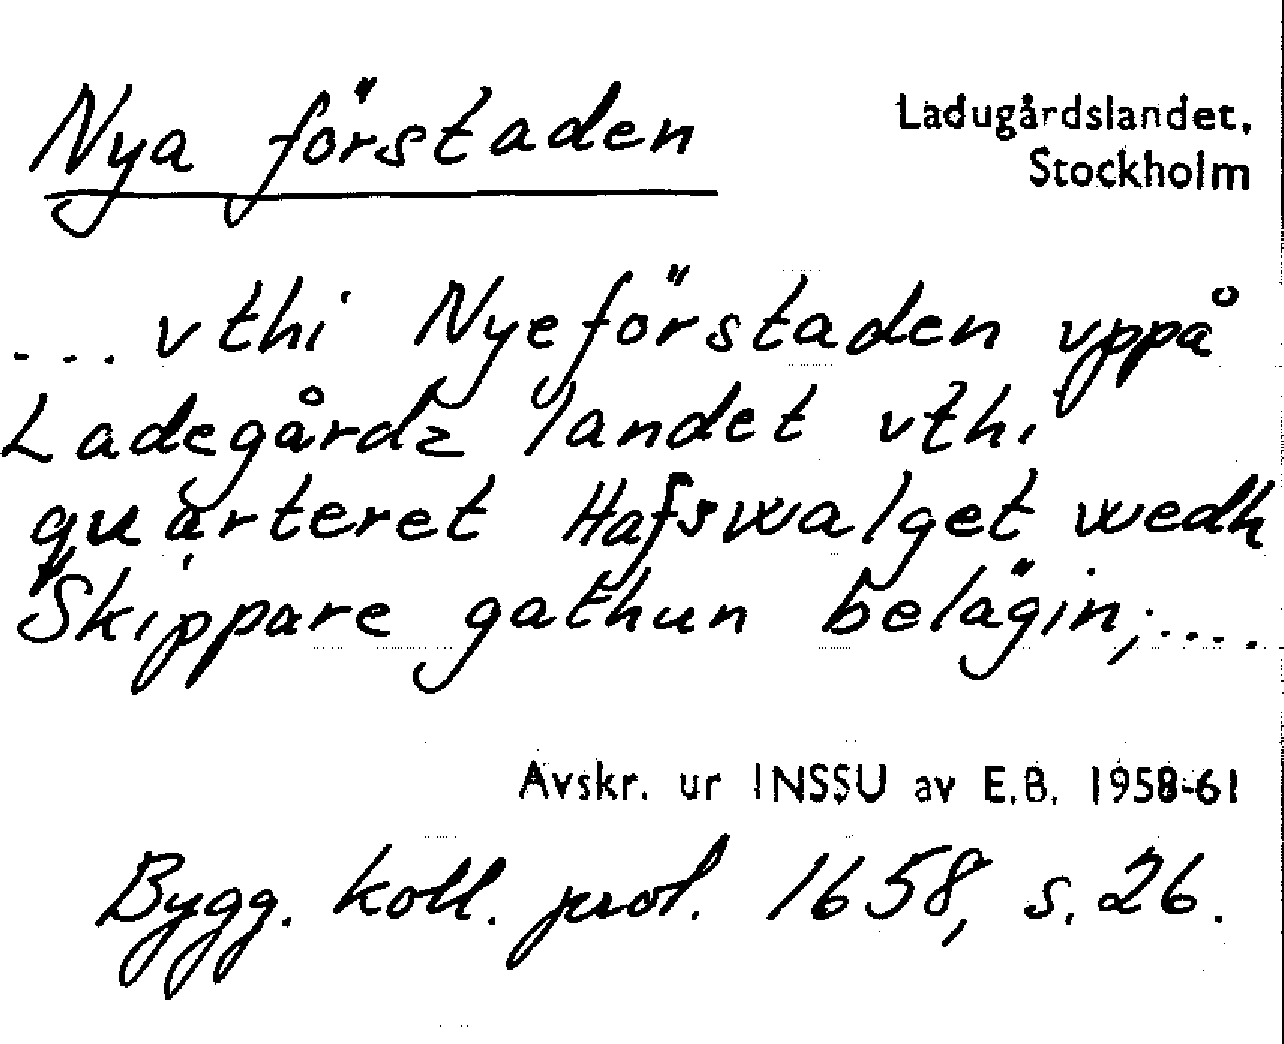 Nya förstaden
Ladugårdslandet,
Stockholm
... vthi Nyeförstaden vppå
Ladegårdz landet vthi
quarteret Hafswalget wedh
Skippare gathun belägin;....
Avskr. ur INSSU av E.B. 1958-61
Bygg. koll. prot. 1658, s. 26.